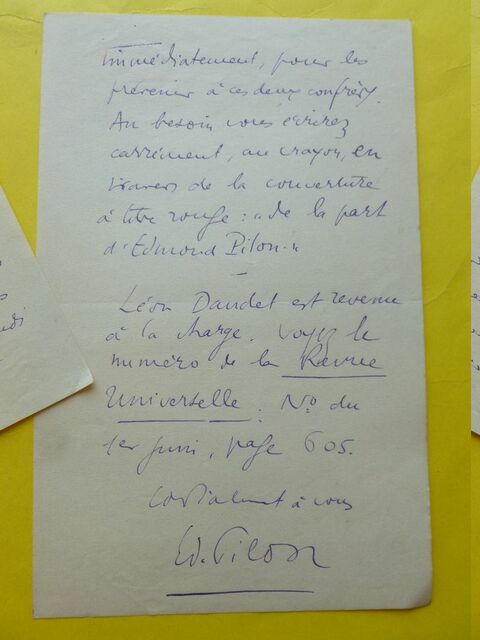 immédiatement, pour les
prévenir à ces deux confrères.
Au besoin vous écrirez
carrément, au crayon, en
travers de la couverture
à titre rouge : "de la part
d'Edmond Pilon."
—
Léon Daudet est revenu
à la charge. Voyez le
numéro de la Revue
Universelle. No du
1er juin, page 605.
cordialement à vous
Ed. Pilon
di